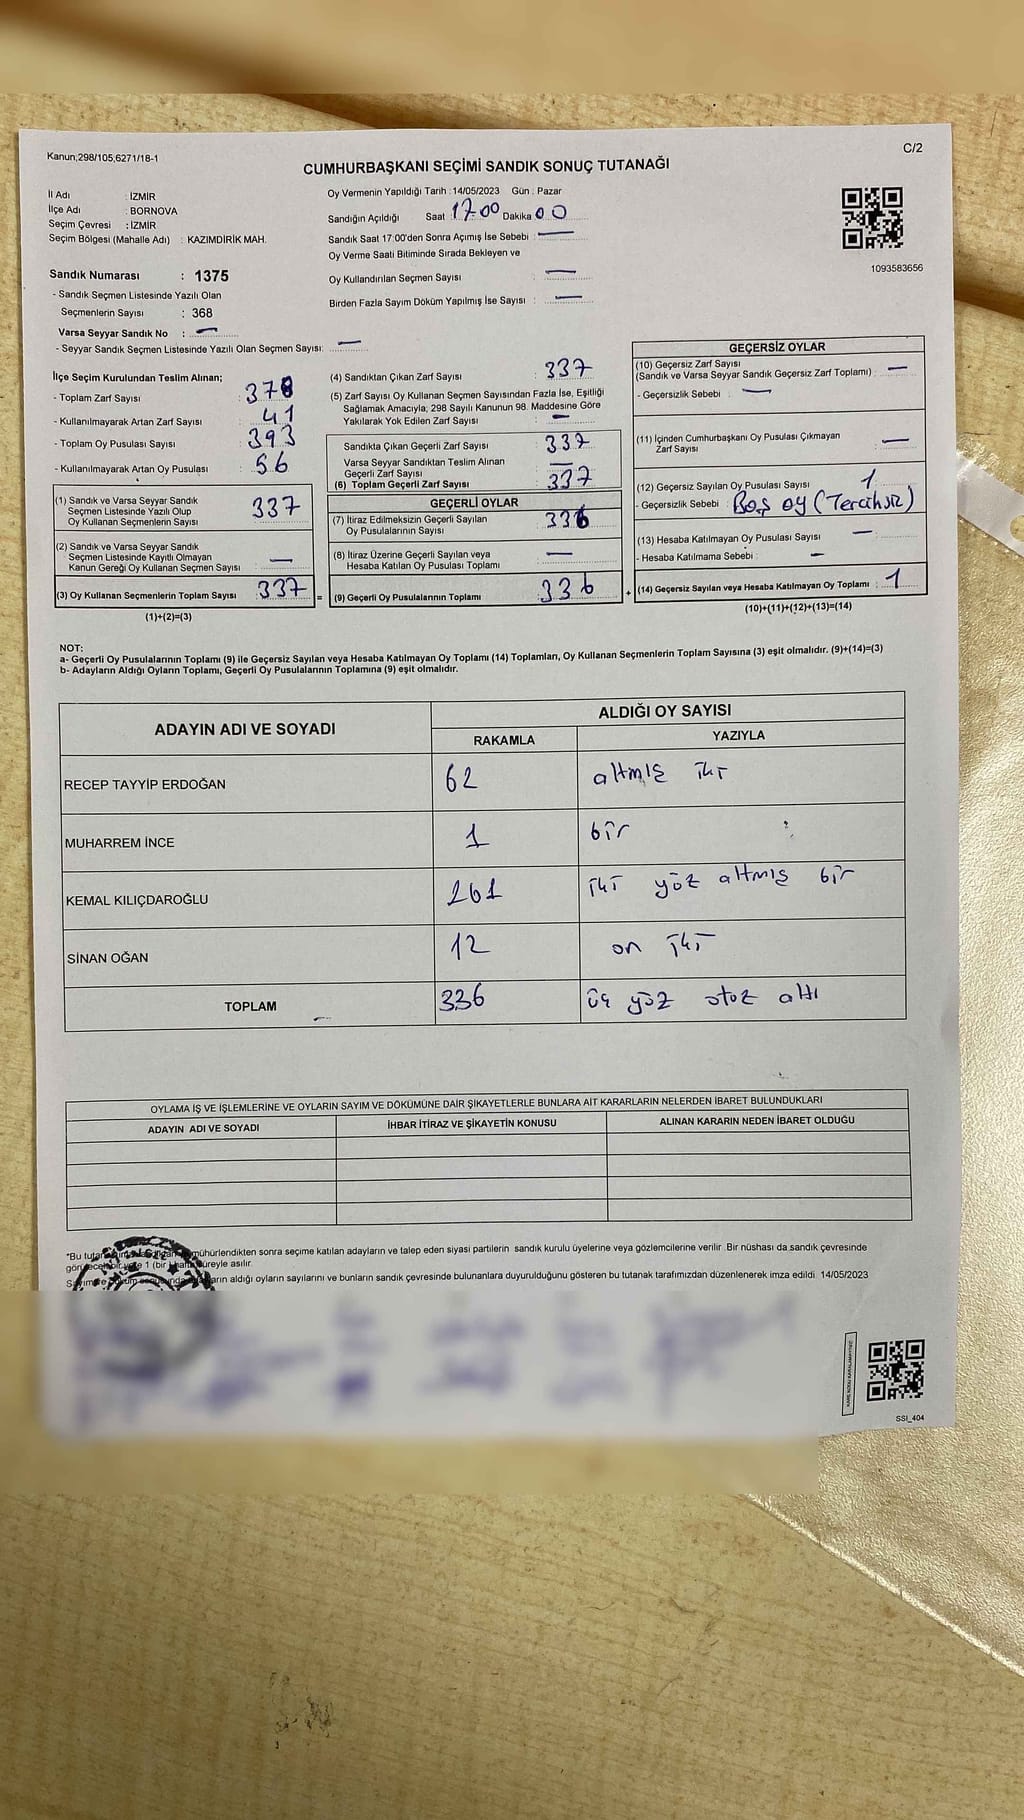 Kanun;298/105,6271/18-1
C/2
CUMHURBAŞKANI SEÇİMİ SANDIK SONUÇ TUTANAĞI
İl Adı : İZMİR
İlçe Adı : BORNOVA
Seçim Çevresi : İZMİR
Seçim Bölgesi (Mahalle Adı) : KAZIMDİRİK MAH.
Oy Vermenin Yapıldığı Tarih :14/05/2023 Gün : Pazar
Sandığın Açıldığı Saat : 17.00 Dakika 00
Sandık Saat 17:00'den Sonra Açımış İse Sebebi : —
Oy Verme Saati Bitiminde Sırada Bekleyen ve
Oy Kullandırılan Seçmen Sayısı : —
Birden Fazla Sayım Döküm Yapılmış İse Sayısı : —
1093583656
Sandık Numarası : 1375
- Sandık Seçmen Listesinde Yazılı Olan
Seçmenlerin Sayısı : 368
Varsa Seyyar Sandık No : —
- Seyyar Sandık Seçmen Listesinde Yazılı Olan Seçmen Sayısı: —
İlçe Seçim Kurulundan Teslim Alınan;
- Toplam Zarf Sayısı : 378
- Kullanılmayarak Artan Zarf Sayısı : 41
- Toplam Oy Pusulası Sayısı : 393
- Kullanılmayarak Artan Oy Pusulası : 56
(1) Sandık ve Varsa Seyyar Sandık
Seçmen Listesinde Yazılı Olup
Oy Kullanan Seçmenlerin Sayısı : 337
(2) Sandık ve Varsa Seyyar Sandık
Seçmen Listesinde Kayıtlı Olmayan
Kanun Gereği Oy Kullanan Seçmen Sayısı : —
(3) Oy Kullanan Seçmenlerin Toplam Sayısı : 337 =
(1)+(2)=(3)
(4) Sandıktan Çıkan Zarf Sayısı : 337
(5) Zarf Sayısı Oy Kullanan Seçmen Sayısından Fazla İse, Eşitliği
Sağlamak Amacıyla; 298 Sayılı Kanunun 98. Maddesine Göre
Yakılarak Yok Edilen Zarf Sayısı : —
Sandıkta Çıkan Geçerli Zarf Sayısı : 337
Varsa Seyyar Sandıktan Teslim Alınan
Geçerli Zarf Sayısı : —
(6) Toplam Geçerli Zarf Sayısı : 337
GEÇERLİ OYLAR
(7) İtiraz Edilmeksizin Geçerli Sayılan
Oy Pusulalarının Sayısı : 336
(8) İtiraz Üzerine Geçerli Sayılan veya
Hesaba Katılan Oy Pusulası Toplamı : —
(9) Geçerli Oy Pusulalarının Toplamı : 336 +
GEÇERSİZ OYLAR
(10) Geçersiz Zarf Sayısı
(Sandık ve Varsa Seyyar Sandık Geçersiz Zarf Toplamı) : —
- Geçersizlik Sebebi : —
(11) İçinden Cumhurbaşkanı Oy Pusulası Çıkmayan
Zarf Sayısı : —
(12) Geçersiz Sayılan Oy Pusulası Sayısı : 1
- Geçersizlik Sebebi : Boş oy (Tercihsiz)
(13) Hesaba Katılmayan Oy Pusulası Sayısı : —
- Hesaba Katılmama Sebebi : —
(14) Geçersiz Sayılan veya Hesaba Katılmayan Oy Toplamı : 1
(10)+(11)+(12)+(13)=(14)
NOT:
a- Geçerli Oy Pusulalarının Toplamı (9) ile Geçersiz Sayılan veya Hesaba Katılmayan Oy Toplamı (14) Toplamları, Oy Kullanan Seçmenlerin Toplam Sayısına (3) eşit olmalıdır. (9)+(14)=(3)
b- Adayların Aldığı Oyların Toplamı, Geçerli Oy Pusulalarının Toplamına (9) eşit olmalıdır.
ADAYIN ADI VE SOYADI
ALDIĞI OY SAYISI
RAKAMLA YAZIYLA
RECEP TAYYİP ERDOĞAN 62 altmış iki
MUHARREM İNCE 1 bir
KEMAL KILIÇDAROĞLU 261 iki yüz altmış bir
SİNAN OĞAN 12 on iki
TOPLAM 336 üç yüz otuz altı
OYLAMA İŞ VE İŞLEMLERİNE VE OYLARIN SAYIM VE DÖKÜMÜNE DAİR ŞİKAYETLERLE BUNLARA AİT KARARLARIN NELERDEN İBARET BULUNDUKLARI
ADAYIN ADI VE SOYADI İHBAR İTİRAZ VE ŞİKAYETİN KONUSU ALINAN KARARIN NEDEN İBARET OLDUĞU
*Bu mühürlendikten sonra seçime katılan adayların ve talep eden siyasi partilerin sandık kurulu üyelerine veya gözlemcilerine verilir. Bir nüshası da sandık çevresinde
1 (bir) süreyle asılır.
aldığı oyların sayılarını ve bunların sandık çevresinde bulunanlara duyurulduğunu gösteren bu tutanak tarafımızdan düzenlenerek imza edildi. 14/05/2023
SSI_404